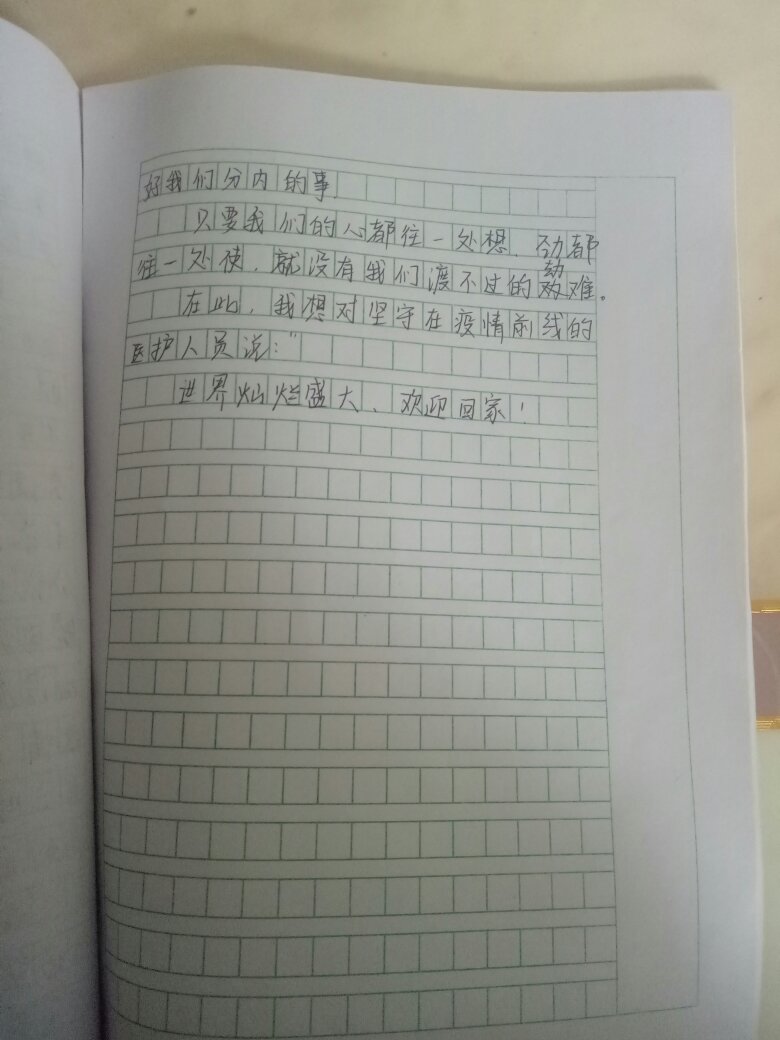 好我们分内的事.
只要我们的心都往一处想，劲都
往一处使，就没有我们渡不过的劫难。
在此，我想对坚守在疫情前线的
医护人员说："
世界灿烂盛大、欢迎回家！